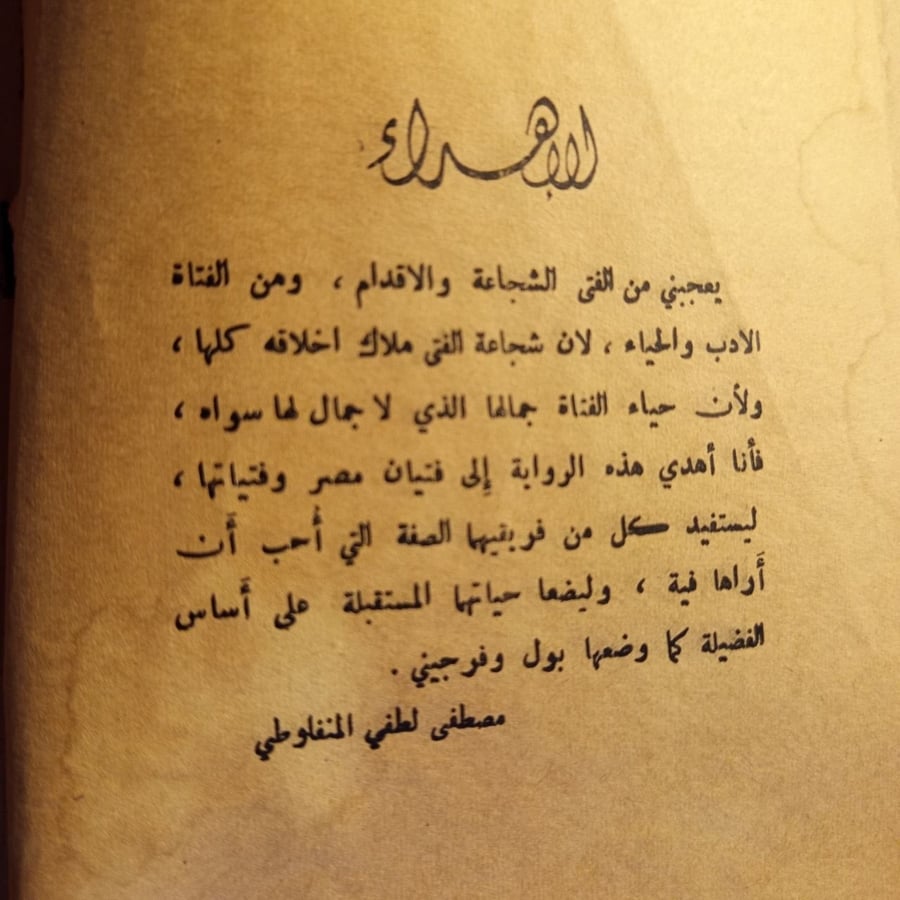 الاهداء
يعجبني من الفتى الشجاعة والاقدام ، ومن الفتاة
الادب والحياء ، لان شجاعة الفتى ملاك اخلاقه كلها ،
ولأن حياء الفتاة جمالها الذي لا جمال لها سواه ،
فأنا أهدي هذه الرواية إلى فتيان مصر وفتياتها ،
ليستفيد كل من فريقيهما الصفة التي أُحب أَن
أَراها فية ، وليضعا حياتهما المستقبلة على أَساس
الفضيلة كما وضعها بول وفرجيني .
مصطفى لطفي المنفلوطي